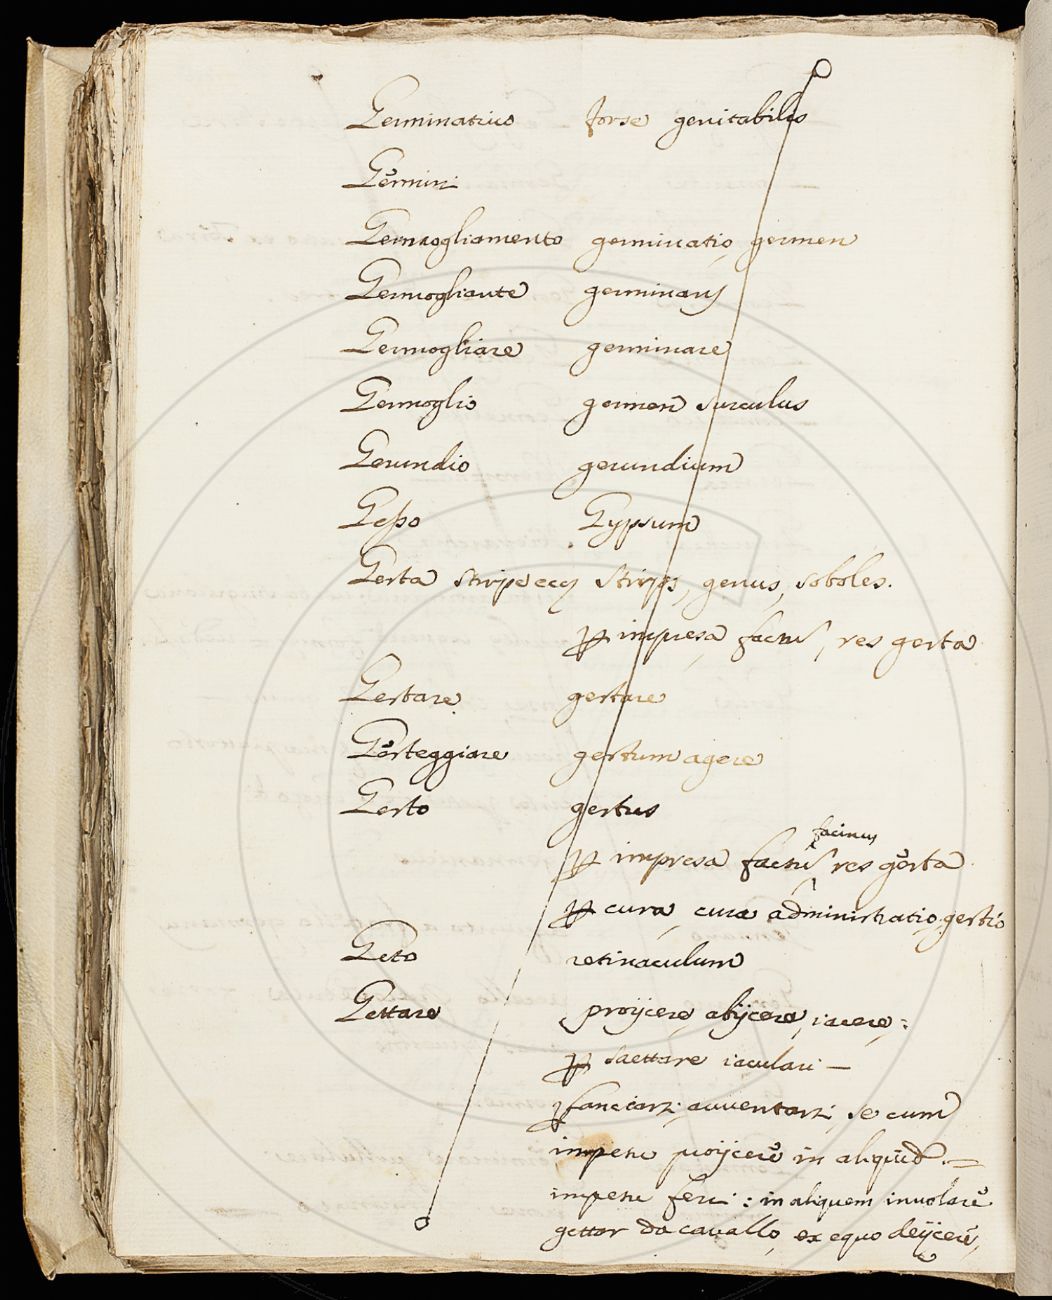 Germinativo forse genitabilis
Gemini
Germogliamento germinatio, germen
Germogliante germinans
Germogliare germinare
Germoglio germen surculus
Gerundio gerundium
Gesso Gypsum
Gesta stirpe stirps, genus, soboles.
p impresa factus, res gesta
Gestare gestare
Gesteggiare gestum agere
Gesto gestus
facinus
p impresa factus res gesta
p cura, cura administratio, gestio
Geto retinaculum
Gettare proijcere, abijcere, iacere:
p saettare iaculari —
p lanciarsi, avventarsi, se cum
impetu proijcere in aliquid. —
impetu feri: in aliquem involare
gettar da cavallo, ex equo deijcere,